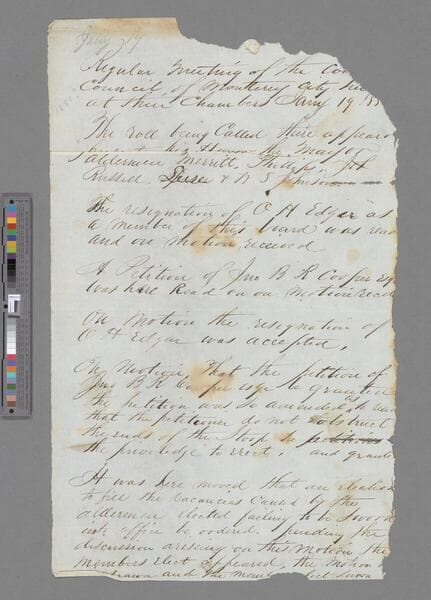 Jany 19
Regular Meeting of the
Council of Monterey City
at their Chambers Jany 19
The roll being Called there appeared
his Honor the Mayor
aldermen Merritt, Phillips,
Russell & W S Johnson
The resignation of O H Edgar as
a member of this board was read
and on motion received
A Petition of Jno B R Cooper Esq
was here Read on motion
On Motion the resignation of
O H Edgar was accepted,
On Motion that the petition of
Jno B R Cooper esqr be granted
the petition was so amended as
that the petitioner do not obstruct
the ends of the Stoop
the priviledge to erect, and
It was here moved that an election
to fill the vacancies Caused by the
aldermen elected failing to be sworn
into office be ordered. pending the
discussion ariseing on this Motion the
members Elect appeared, the Motion
and the